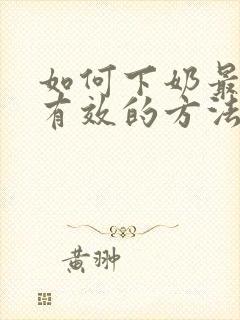 如何下奶最
有效的方法
黄翀